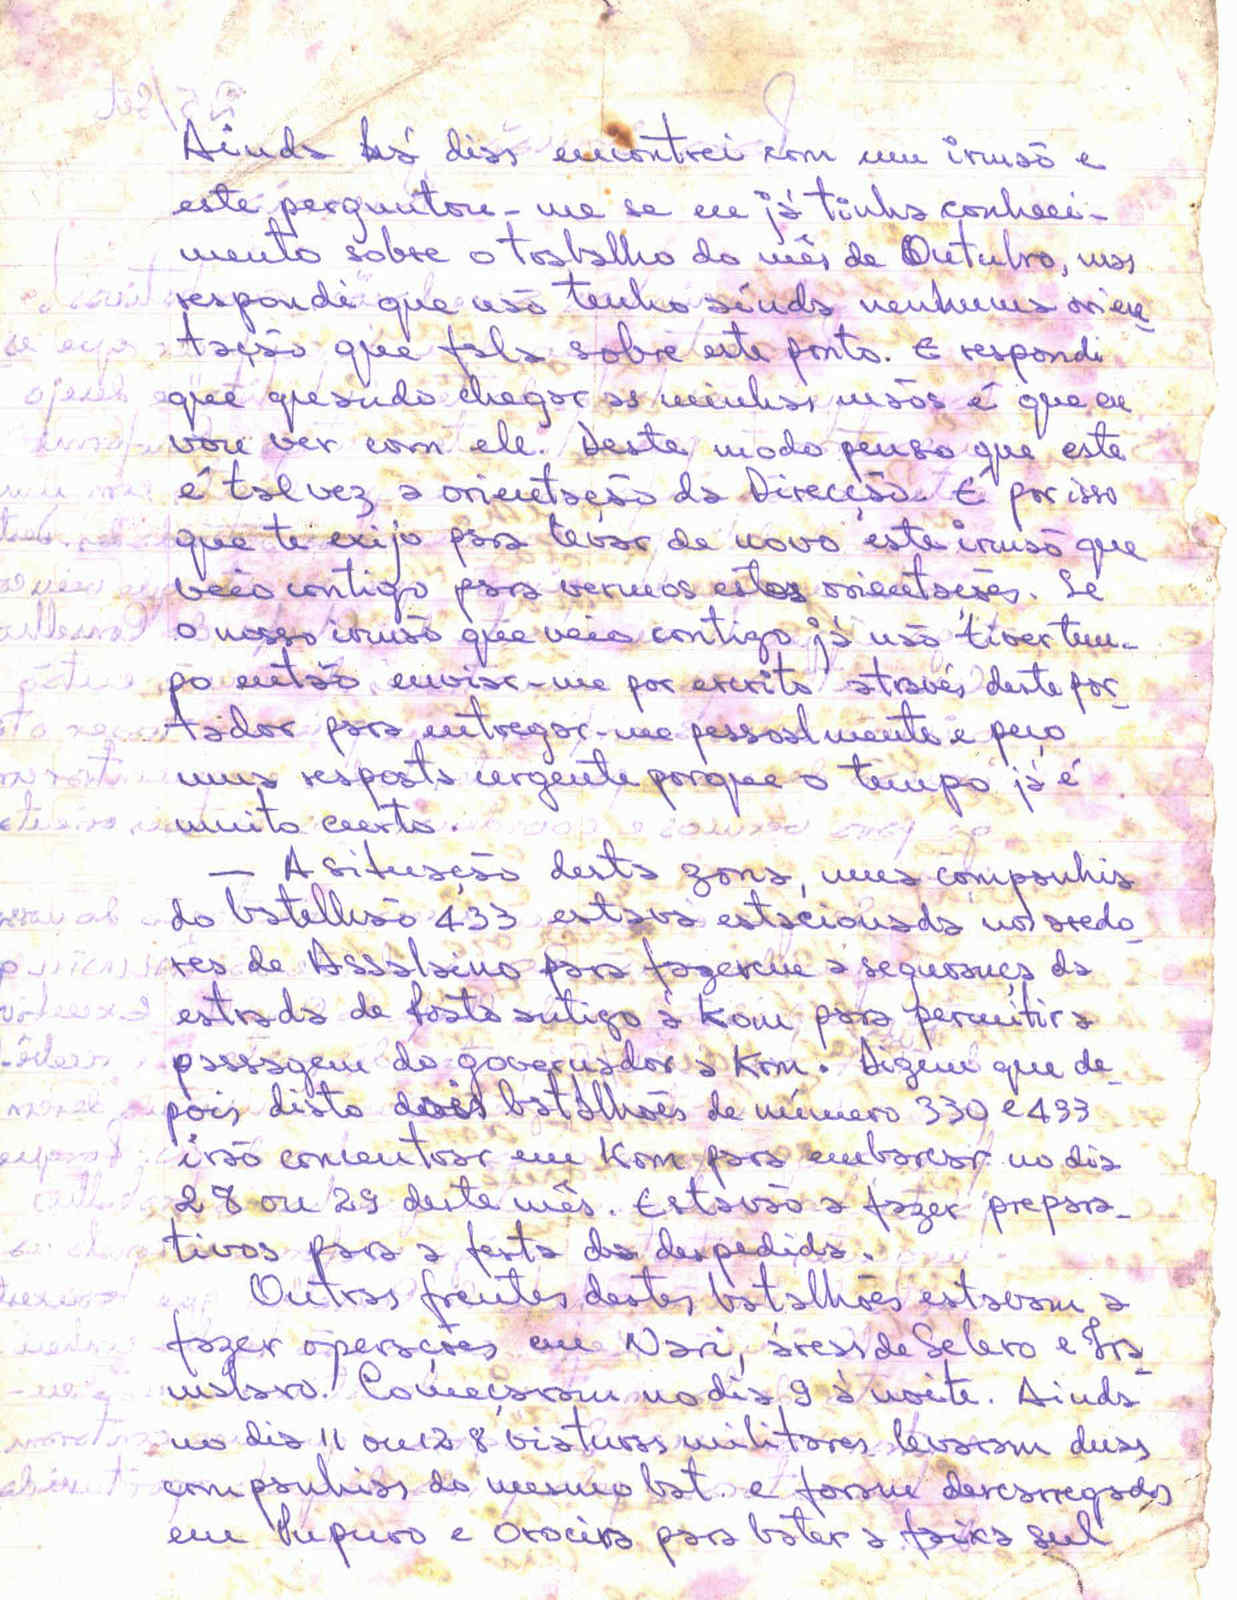 Ainda há dias encontrei com um irmão e
este perguntou-me se eu já tinha conheci-
mento sobre o trabalho do mês de Outubro, mas
respondi que não tenho ainda nenhuma orien-
tação que fala sobre este ponto. E respondi
que quando chegar as minhas mãos é que eu
vou ver com ele. Deste modo penso que este
é talvez a orientação da Direcção. É por isso
que te exijo para levar de novo este irmão que
veio contigo para vermos estas orientações. Se
o nosso irmão que veio contigo já não tiver tem-
po então enviar-me por escrito através deste por-
tador para entregar-me pessoalmente e peço
uma resposta urgente porque o tempo já é
muito curto.
— A situação desta zona, uma companhia
do batalhão 433 estava estacionada nos aredo-
res de Assalaino para fazerem a segurança da
estrada de posto antigo à Kom para permitir a
passagem do governador a Kom. Dizem que de-
pois disto dois batalhões de número 330 e 433
irão concentrar em Kom para embarcar no dia
28 ou 29 deste mês. Estavão a fazer prepara-
tivos para a festa da despedida.
Outras frentes destes batalhões estavam a
fazer operações em Nari, áreas de Selero e Ira-
malaro. Começaram no dia 9 à noite. Ainda
no dia 11 ou 12 8 viaturas militares levaram duas
companhias do mesmo bat. e foram descarregados
em Pupuro e para bater a faixa sul